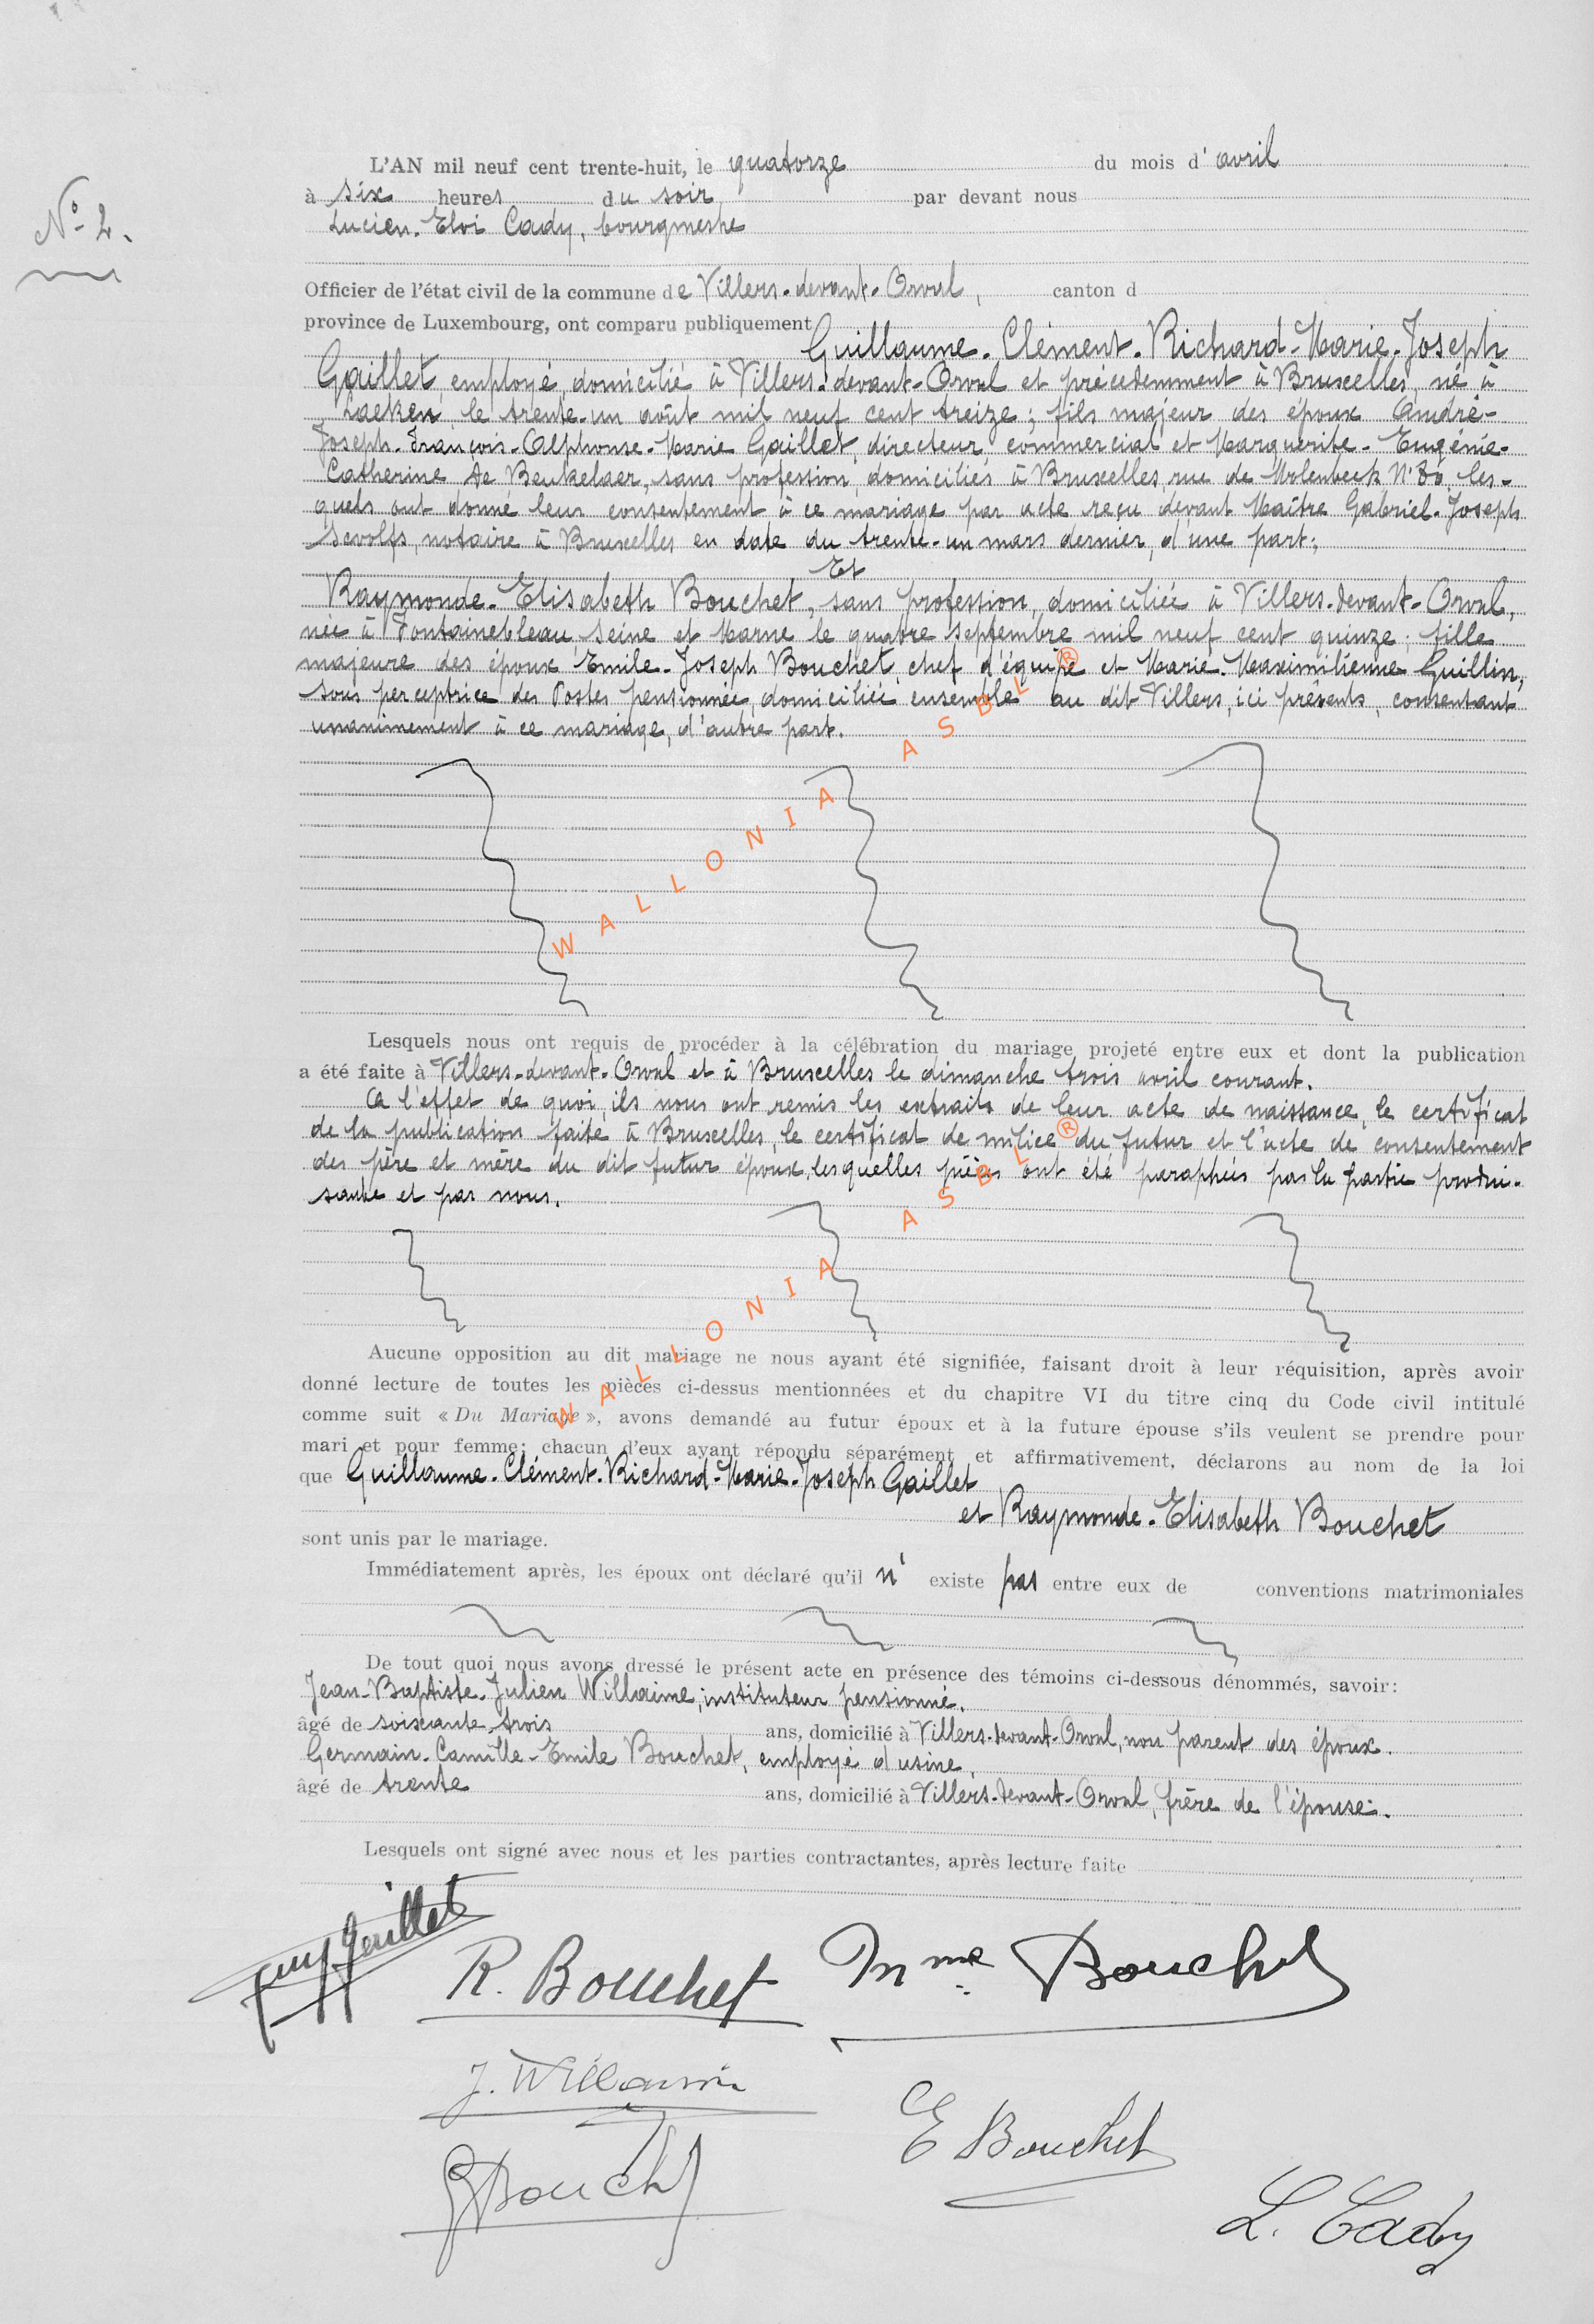 N° 2.
L'AN mil neuf cent trente-huit, le quatorze du mois d'avril
à six heures du soir par devant nous
Lucien-Eloi Cady, bourgmestre
Officier de l'état civil de la commune de Villers-devant-Orval, canton d
province de Luxembourg, ont comparu publiquement Guillaume-Clément-Richard-Marie-Joseph
Gaillet, employé, domicilié à Villers-devant-Orval et précédemment à Bruxelles, né à
Laeken, le trente-un août mil neuf cent treize; fils majeur des époux André-
Joseph-François-Alphonse-Marie Gaillet, directeur commercial et Marguerite-Eugénie-
Catherine De Beukelaer, sans profession, domiciliés à Bruxelles rue de Molenbeek N° 80, les-
quels ont donné leur consentement à ce mariage par acte reçu devant Maître Gabriel-Joseph
notaire à Bruxelles en date du trente-un mars dernier, d'une part;
Et
Raymonde-Elisabeth Bouchet, sans profession, domiciliée à Villers-devant-Orval,
née à Fontainebleau, Seine et Marne le quatre septembre mil neuf cent quinze; fille
majeure des époux Emile-Joseph Bouchet, chef d'équipe et Marie-Maximilienne Guillin,
sous perceptrice des Postes pensionnée, domiciliés ensemble au dit Villers, ici présents, consentant
unanimement à ce mariage, d'autre part.
Lesquels nous ont requis de procéder à la célébration du mariage projeté entre eux et dont la publication
a été faite à Villers-devant-Orval et à Bruxelles le dimanche trois avril courant.
A l'effet de quoi, ils nous ont remis les extraits de leur acte de naissance, le certificat
de la publication faite à Bruxelles, le certificat de milice du futur et l'acte de consentement
des père et mère du dit futur époux, lesquelles pièces ont été paraphées par la partie produi-
sante et par nous.
Aucune opposition au dit mariage ne nous ayant été signifiée, faisant droit à leur réquisition, après avoir
donné lecture de toutes les pièces ci-dessus mentionnées et du chapitre VI du titre cinq du Code civil intitulé
comme suit « Du Mariage », avons demandé au futur époux et à la future épouse s'ils veulent se prendre pour
mari et pour femme; chacun d'eux ayant répondu séparément et affirmativement, déclarons au nom de la loi
que Guillaume-Clément-Richard-Marie-Joseph Gaillet
et Raymonde-Elisabeth Bouchet
sont unis par le mariage.
Immédiatement après, les époux ont déclaré qu'il n'existe pas entre eux de conventions matrimoniales
De tout quoi nous avons dressé le présent acte en présence des témoins ci-dessous dénommés, savoir:
Jean-Baptiste-Julien Willaime, instituteur pensionné,
âgé de soixante-trois ans, domicilié à Villers-devant-Orval, non parent des époux.
Germain-Camille-Emile Bouchet, employé d'usine,
âgé de trente ans, domicilié à Villers-devant-Orval, frère de l'épouse.
Lesquels ont signé avec nous et les parties contractantes, après lecture faite
Guy Gaillet
R. Bouchet Mme Bouchet
J. Willaime
E Bouchet
G Bouchet
L. Cady
WALLONIA ASBL ®
WALLONIA ASBL ®